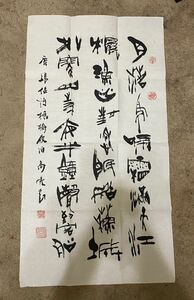 月落烏啼霜滿天江
楓漁火對愁眠姑蘇城
外寒山寺夜半鐘聲到客船
唐張继詩楓橋夜泊